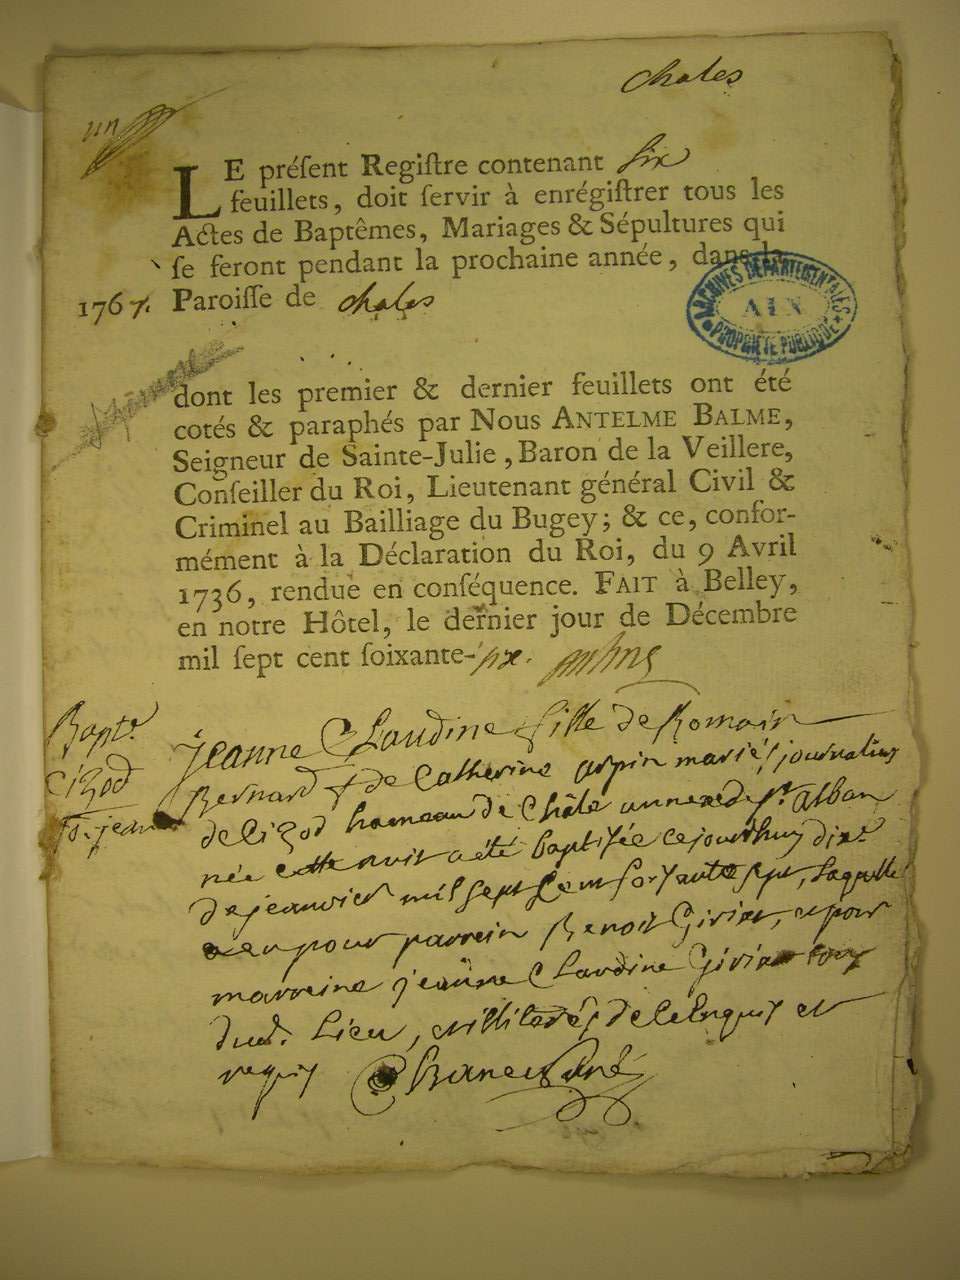 chales
un
LE préſent Regiſtre contenant ſix
feuillets, doit ſervir à enrégiſtrer tous les
Actes de Baptêmes, Mariages & Sépultures qui
ſe feront pendant la prochaine année, dans la
1767. Paroiſſe de chales
ARCHIVES DÉPARTEMENTALES
AIN
PROPRIÉTÉ PUBLIQUE
dont les premier & dernier feuillets ont été
cotés & paraphés par Nous ANTELME BALME,
Seigneur de Sainte-Julie, Baron de la Veillere,
Conſeiller du Roi, Lieutenant général Civil &
Criminel au Bailliage du Bugey; & ce, confor-
mément à la Déclaration du Roi, du 9 Avril
1736, rendue en conſéquence. FAIT à Belley,
en notre Hôtel, le dernier jour de Décembre
mil ſept cent ſoixante-six.
Bapt.
Cizod
jeanne Claudine fille de Romain
Bernard & de Catherine arpin mariés journaliers
de Cizod hameau de Châle annexe de St alban
née cette nuit a été baptisée ce jourdhuy
de jeanvier mil sept cent soixante sept, laquelle
a eu pour parrein Benoit Girier, et pour
marreine jeanne Claudine Girier tous
dud. Lieu, et illiterés de ce Enquis et
requis